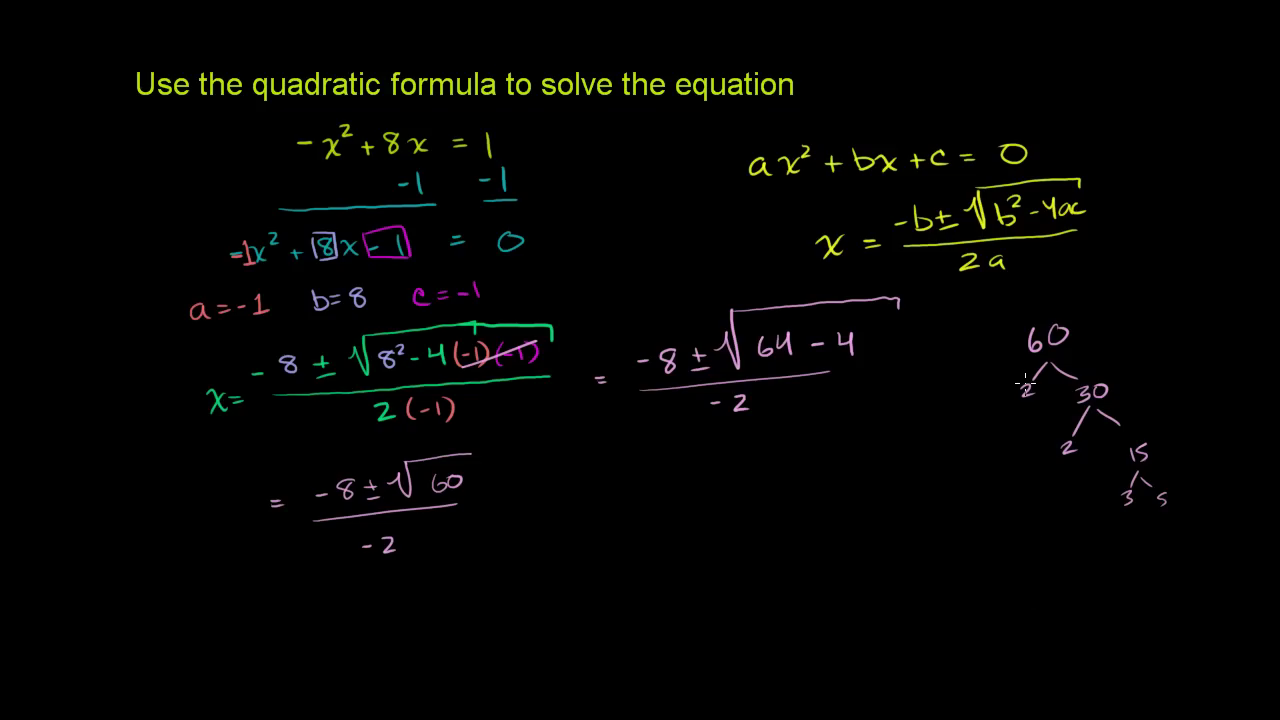 Use the quadratic formula to solve the equation
-x² + 8x = 1
-1 -1
-1x² + 8x - 1 = 0
a = -1 b = 8 c = -1
x = -8 ± √(8² - 4(-1)(-1)) / 2(-1)
= -8 ± √(64 - 4) / -2
= -8 ± √60 / -2
ax² + bx + c = 0
x = -b ± √(b² - 4ac) / 2a
60
2 30
2 15
3 5